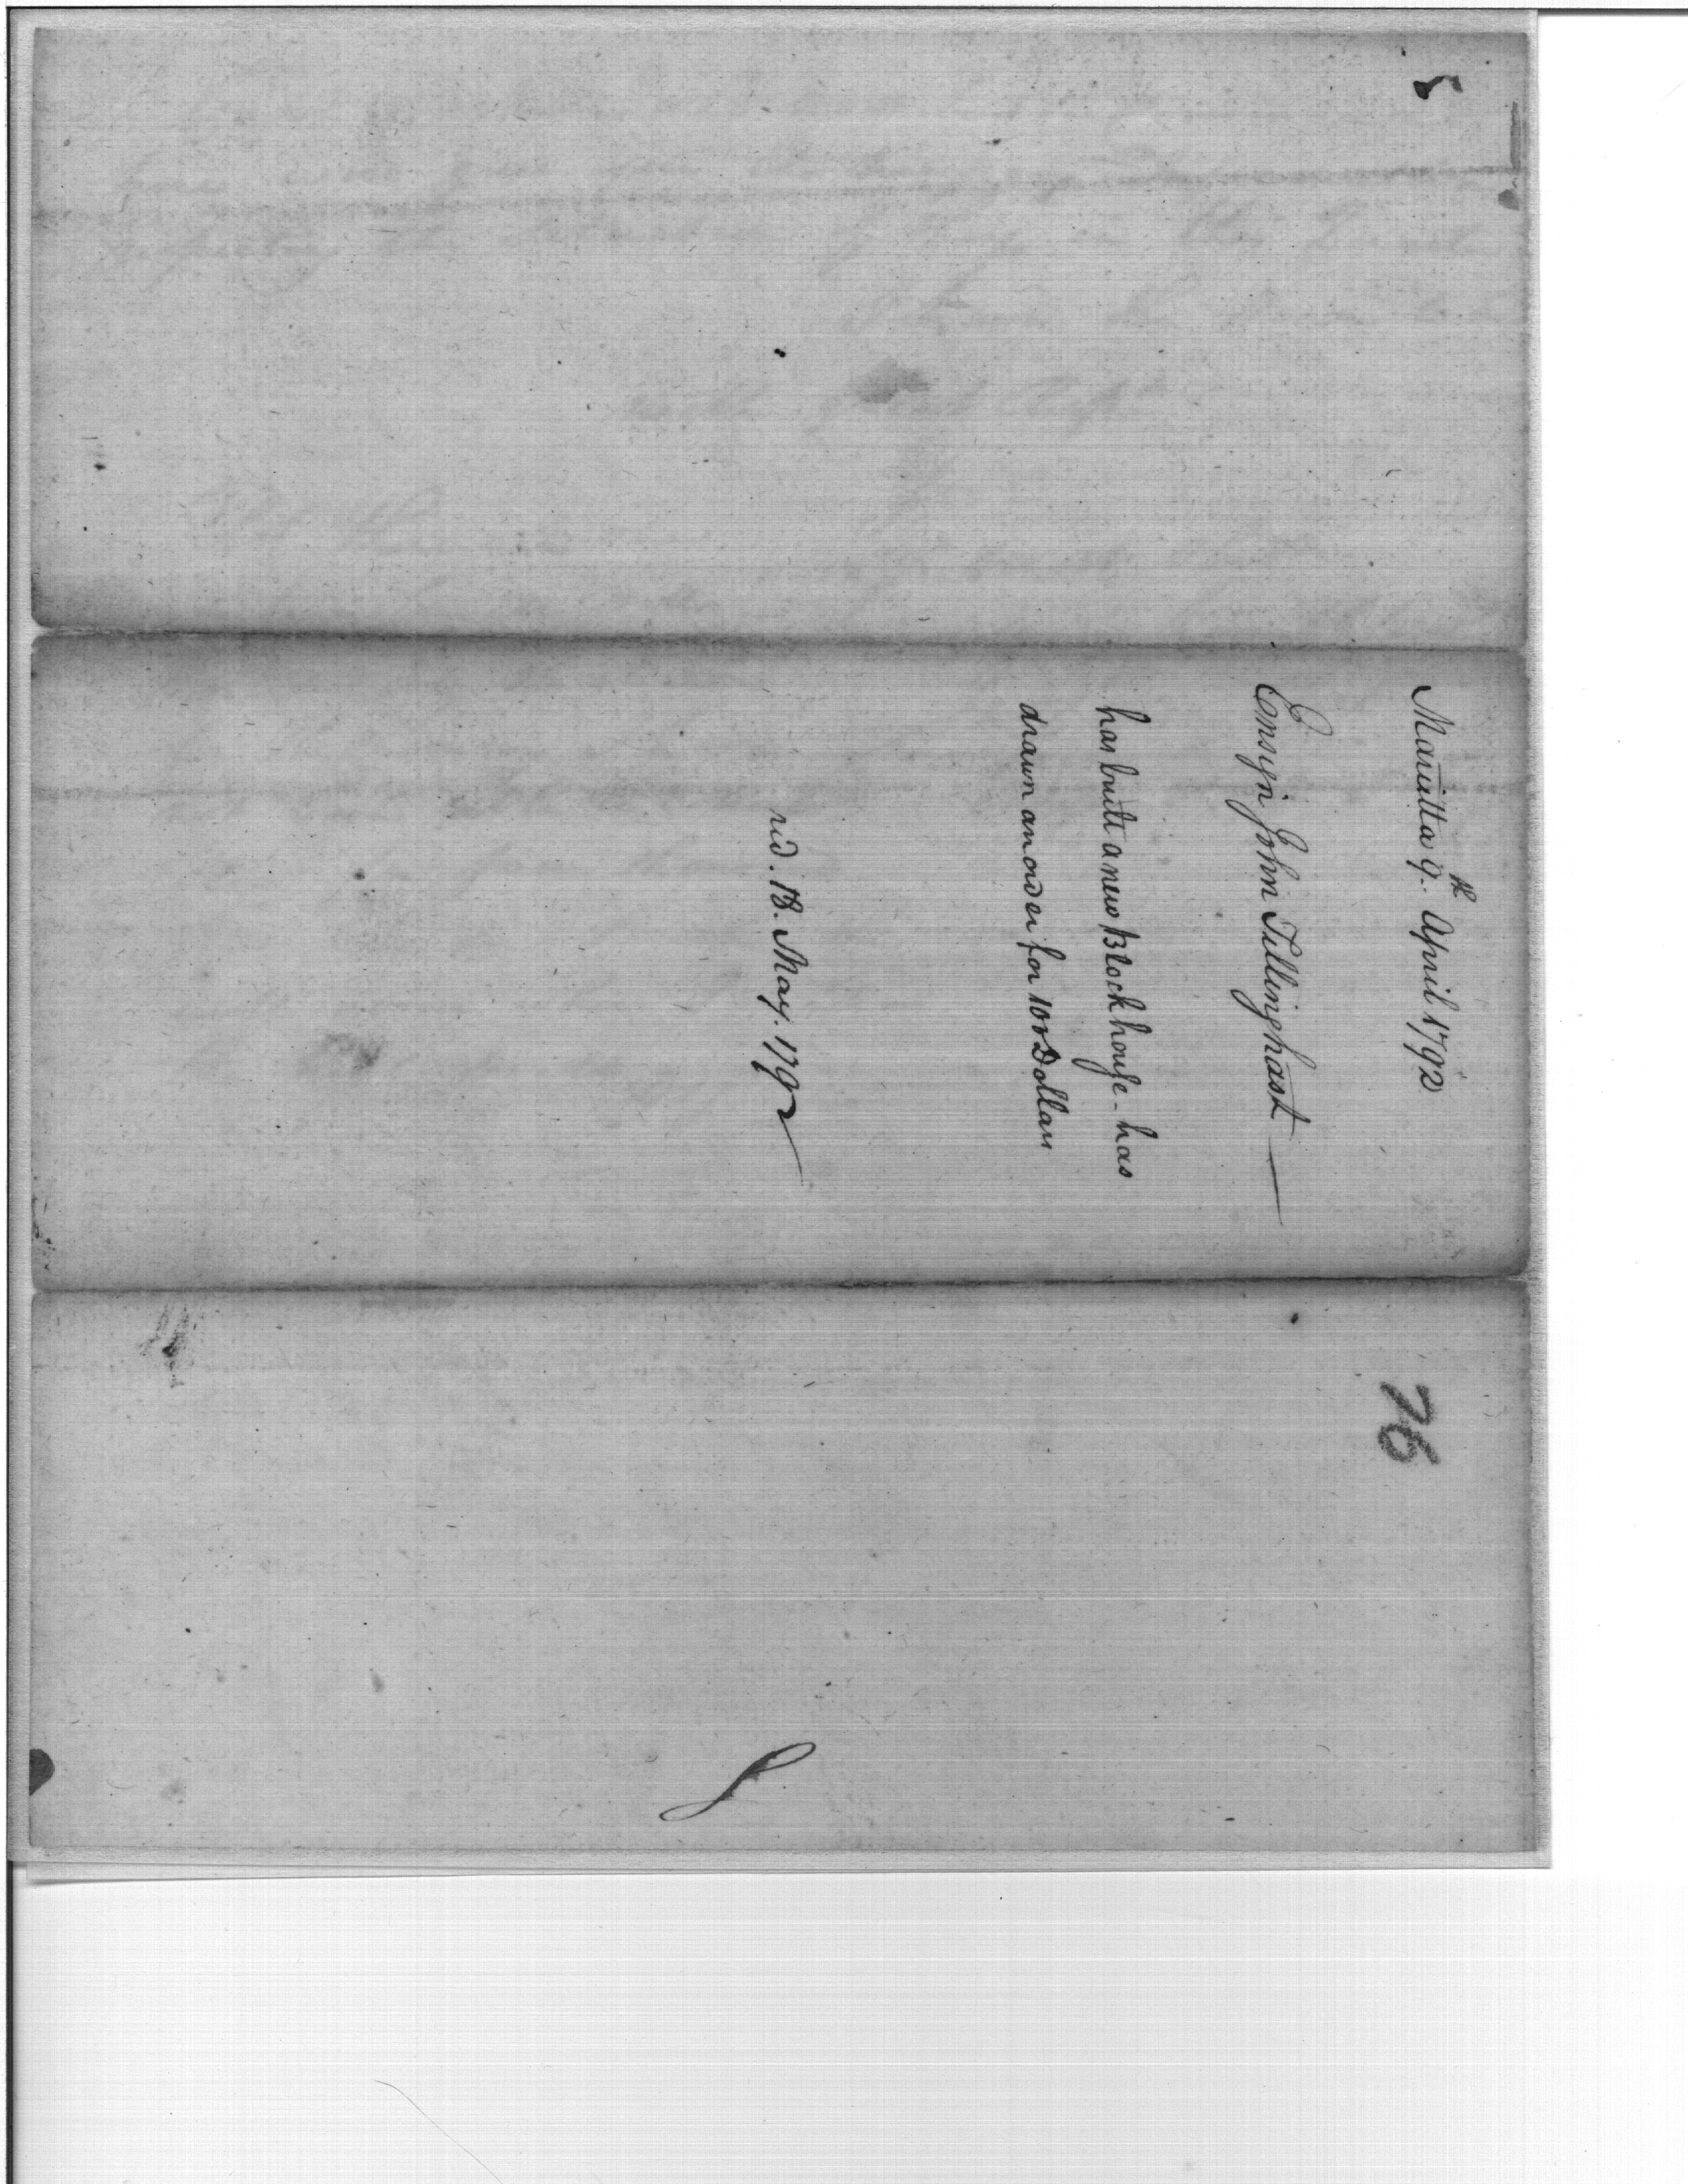 Mariётta 9th April 1792
Ensign John Tillinghast —
has built a new Blockhouse - has
drawn an order for 100 Dollars
recd. 18. May. 1792
76